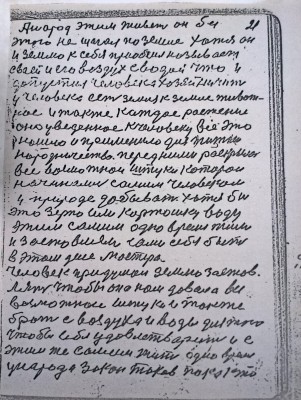 21
А народ этим живет он бы
этого не шагал по земле хотя он
и землю к себе приобщил называет
своей и его воздух с водой что и
допустил человека хозяйничать
у человека есть земля к земле живот-
ное и также каждое растение
оно уведенное к человеку всё это
пошло и применимо для жизни
народничества перед ними раскрылись
все возможной штуки которой
начинали самим человеком
у природе добывать хотя бы
это зерно или картошку воду
этим самим одно время жить
и заставлять сами себя быть
в этом деле мастера.
Человек придумал землю застав.
лять чтобы она нам давала вся
возможное штуки и также
брать с воздуха и воды для того
чтобы себя удовлетворить и с
этим же самим жить одно время
у народа закон таков пока это